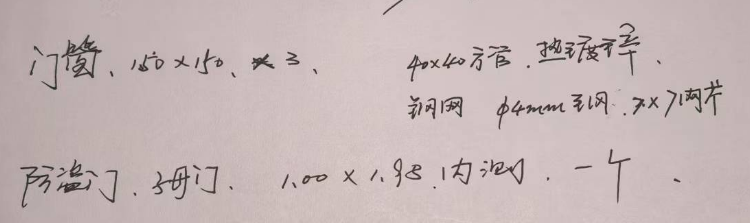 门窗、150×150、×3、
40×40方管、热镀锌、
钢网 φ4mm钢、7×7网片
防盗门、子母门、1.00×1.98、内测、一个、